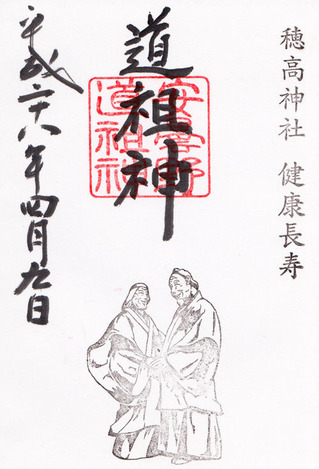 穂高神社 健康長寿
道祖神
安曇野
道祖神
平成二十八年四月九日